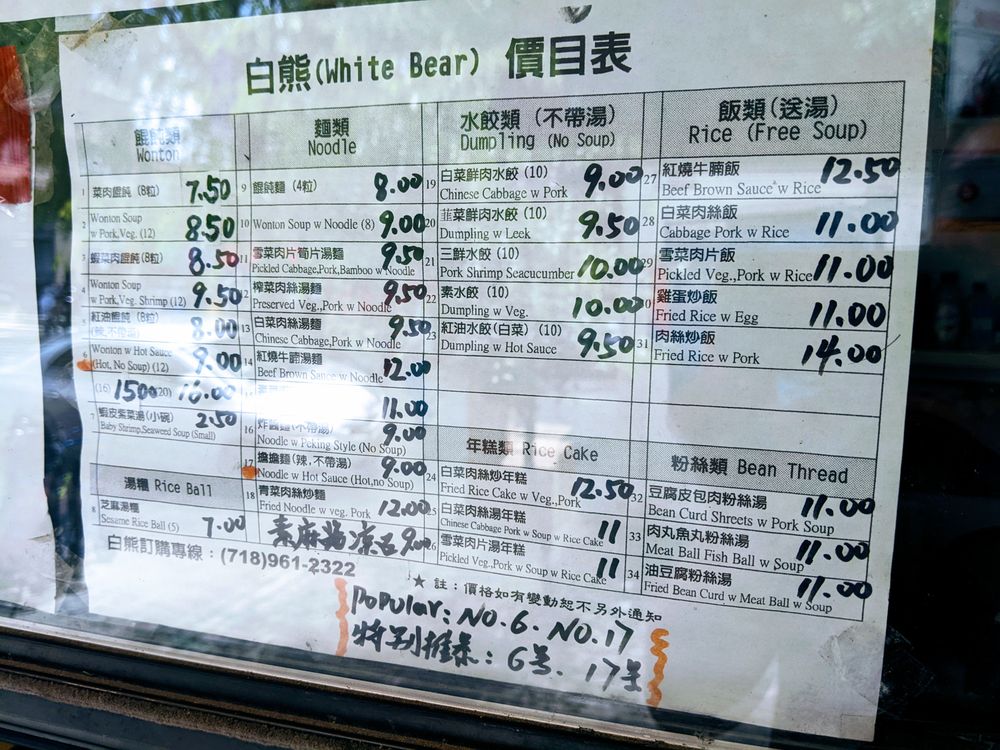 白熊(White Bear) 價目表
餛飩類
Wonton
1 菜肉餛飩 (8粒) 7.50
2 Wonton Soup
w Pork,Veg. (12) 8.50
3 蝦菜肉餛飩(8粒) 8.50
4 Wonton Soup
w Pork,Veg. Shrimp (12) 9.50
5 紅油餛飩 (8粒)
(辣,不帶湯) 8.00
6 Wonton w Hot Sauce
(Hot, No Soup) (12) 9.00
(16) 15.00 (20) 16.00
7 蝦皮紫菜湯(小碗) 2.50
Baby Shrimp,Seaweed Soup (Small)
湯糰 Rice Ball
8 芝麻湯糰
Sesame Rice Ball (5) 7.00
麵類
Noodle
9 餛飩麵 (4粒) 8.00
10 Wonton Soup w Noodle (8) 9.00
11 雪菜肉片筍片湯麵 9.50
Pickled Cabbage,Pork,Bamboo w Noodle
12 榨菜肉絲湯麵 9.50
Preserved Veg.,Pork w Noodle
13 白菜肉絲湯麵 9.50
Chinese Cabbage,Pork w Noodle
14 紅燒牛腩湯麵
Beef Brown Sauce w Noodle 12.00
11.00
16 炸醬麵(不帶湯) 9.00
Noodle w Peking Style (No Soup)
17 擔擔麵(辣,不帶湯) 9.00
Noodle w Hot Sauce (Hot,no Soup)
18 青菜肉絲炒麵
Fried Noodle w veg. Pork 12.00
素麻醬凉 9.00
水餃類 (不帶湯)
Dumpling (No Soup)
19 白菜鮮肉水餃 (10) 9.00
Chinese Cabbage w Pork
20 韮菜鮮肉水餃 (10) 9.50
Dumpling w Leek
21 三鮮水餃 (10)
Pork Shrimp Seacucumber 10.00
22 素水餃 (10)
Dumpling w Veg. 10.00
23 紅油水餃(白菜) (10)
Dumpling w Hot Sauce 9.50
年糕類 Rice Cake
24 白菜肉絲炒年糕
Fried Rice Cake w Veg.,Pork 12.50
白菜肉絲湯年糕
Chinese Cabbage Pork w Soup w Rice Cake 11
雪菜肉片湯年糕
Pickled Veg.,Pork w Soup w Rice Cake 11
飯類(送湯)
Rice (Free Soup)
27 紅燒牛腩飯 12.50
Beef Brown Sauce w Rice
28 白菜肉絲飯 11.00
Cabbage Pork w Rice
29 雪菜肉片飯
Pickled Veg.,Pork w Rice 11.00
30 雞蛋炒飯
Fried Rice w Egg 11.00
31 肉絲炒飯
Fried Rice w Pork 14.00
粉絲類 Bean Thread
32 豆腐皮包肉粉絲湯
Bean Curd Shreets w Pork Soup 11.00
33 肉丸魚丸粉絲湯
Meat Ball Fish Ball w Soup 11.00
34 油豆腐粉絲湯
Fried Bean Curd w Meat Ball w Soup 11.00
白熊訂購專線 : (718)961-2322
★ 註 : 價格如有變動恕不另外通知
Popular: NO.6. NO.17
特别推荐: 6号. 17号